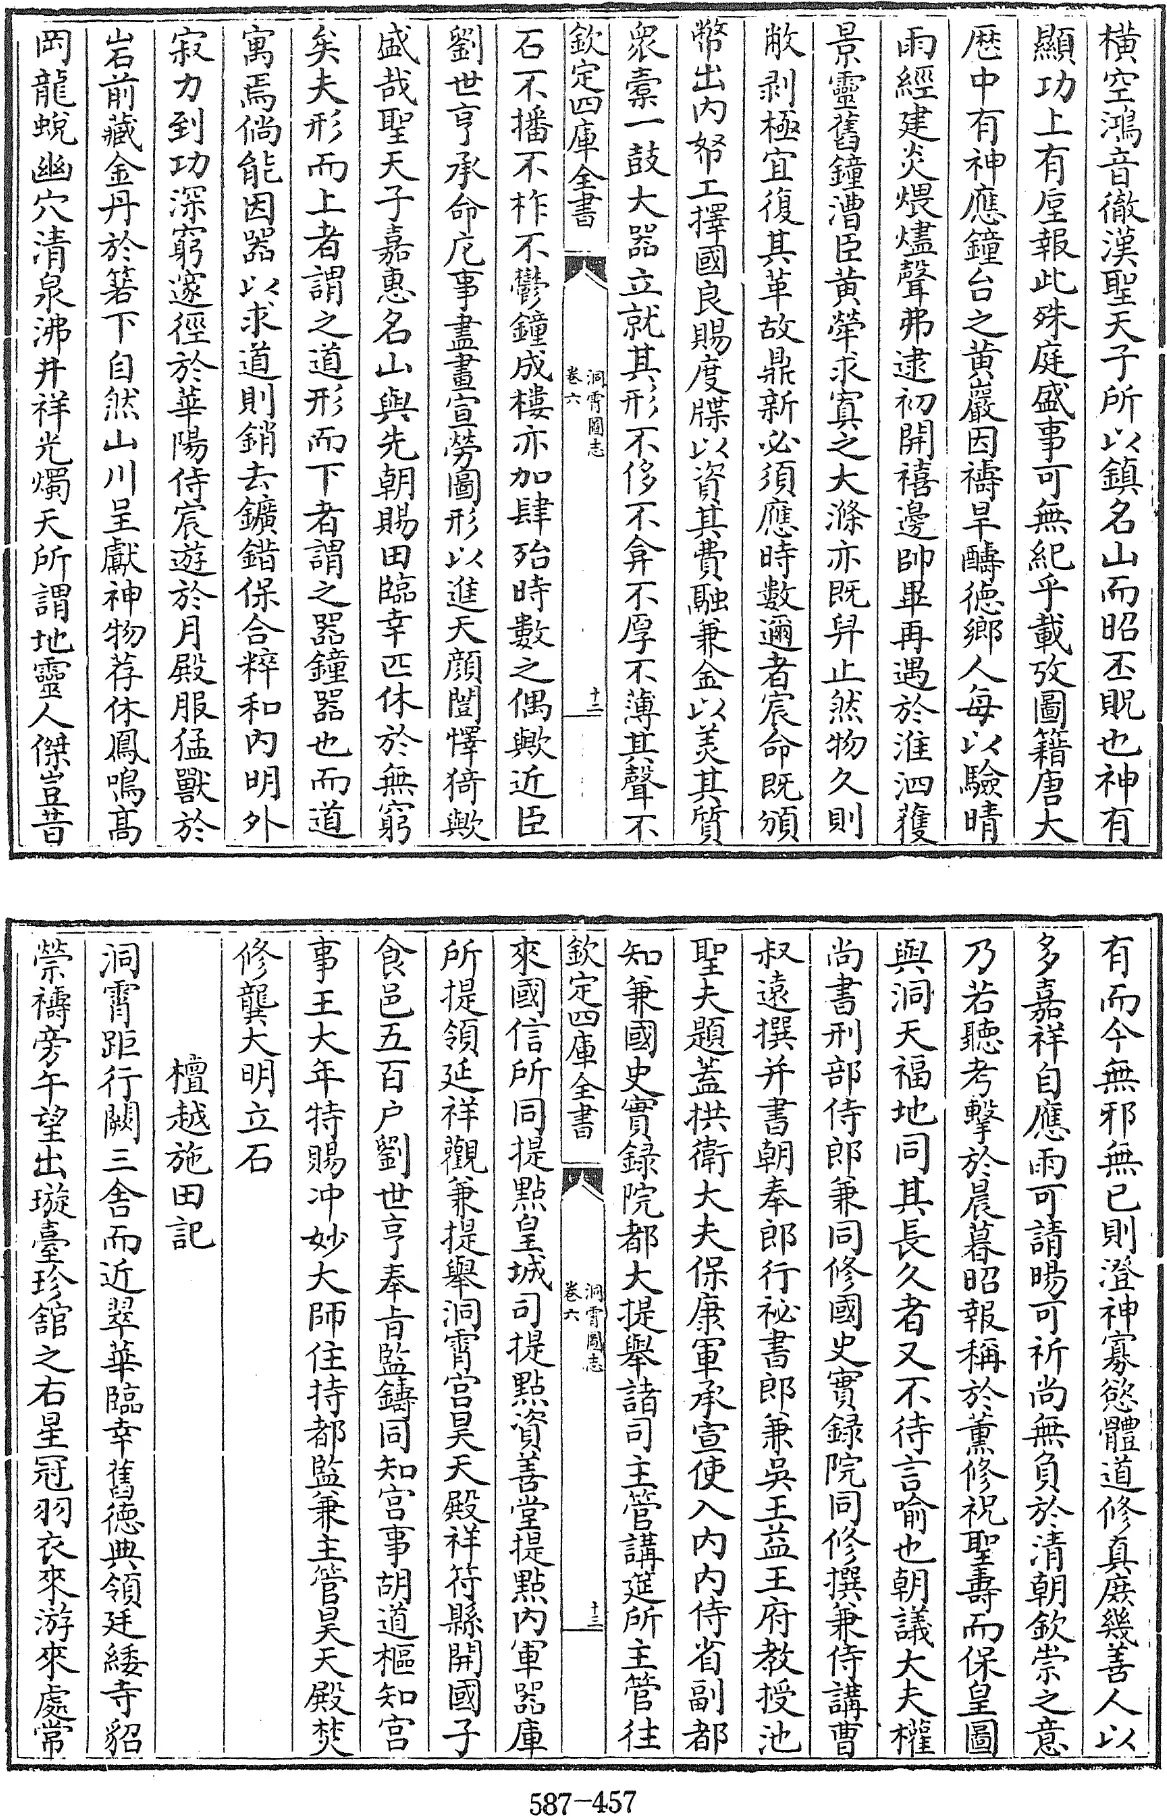 橫空鴻音徹漢聖天子所以鎮名山而昭丕貺也神有
顯功上有厔報此殊庭盛事可無紀乎載攷圖籍唐大
歴中有神應鐘台之黄巖因禱旱醻徳鄉人每以驗晴
雨經建炎煨燼聲弗逮初開禧邊帥畢再遇於淮泗獲
景靈舊鐘漕臣黄犖求寘之大滌亦既舁止然物久則
敝剥極宜復其革故鼎新必須應時數邇者宸命既頒
幣出内帑工擇國良賜度牒以資其費融兼金以美其質
衆橐一鼓大器立就其形不侈不弇不厚不薄其聲不
欽定四庫全書
洞霄圖志
卷六
十二
石不播不柞不鬱鐘成樓亦加肆殆時數之偶歟近臣
劉世亨承命庀事盡畫宣勞圖形以進天顔誾懌猗歟
盛哉聖天子嘉惠名山與先朝賜田臨幸匹休於無窮
矣夫形而上者謂之道形而下者謂之器鐘器也而道
寓焉倘能因器以求道則銷去鑛錯保合粹和内明外
寂力到功深窮邃徑於華陽侍宸遊於月殿服猛獸於
岩前藏金丹於箬下自然山川呈獻神物荐休鳳鳴髙
岡龍蜕幽穴清泉沸井祥光燭天所謂地靈人傑豈昔
有而今無邪無已則澄神寡慾體道修真庶幾善人以
多嘉祥自應雨可請暘可祈尚無負於清朝欽崇之意
乃若聽考擊於晨暮昭報稱於薫修祝聖壽而保皇圖
與洞天福地同其長久者又不待言喻也朝議大夫權
尚書刑部侍郎兼同修國史實録院同修撰兼侍講曹
叔遠撰并書朝奉郎行祕書郎兼吳王益王府教授池
聖夫題蓋拱衛大夫保康軍承宣使入内内侍省副都
知兼國史實録院都大提舉諸司主管講筵所主管往
欽定四庫全書
洞霄圖志
卷六
十三
來國信所同提點皇城司提點資善堂提點内軍器庫
所提領延祥觀兼提舉洞霄宫昊天殿祥符縣開國子
食邑五百户劉世亨奉旨監鑄同知宫事胡道樞知宫
事王大年特賜冲妙大師住持都監兼主管昊天殿焚
修龔大明立石
檀越施田記
洞霄距行闕三舍而近翠華臨幸舊徳典領廷緌寺貂
禜禱旁午望出璇臺珍舘之右星冠羽衣來游來處常
587-457